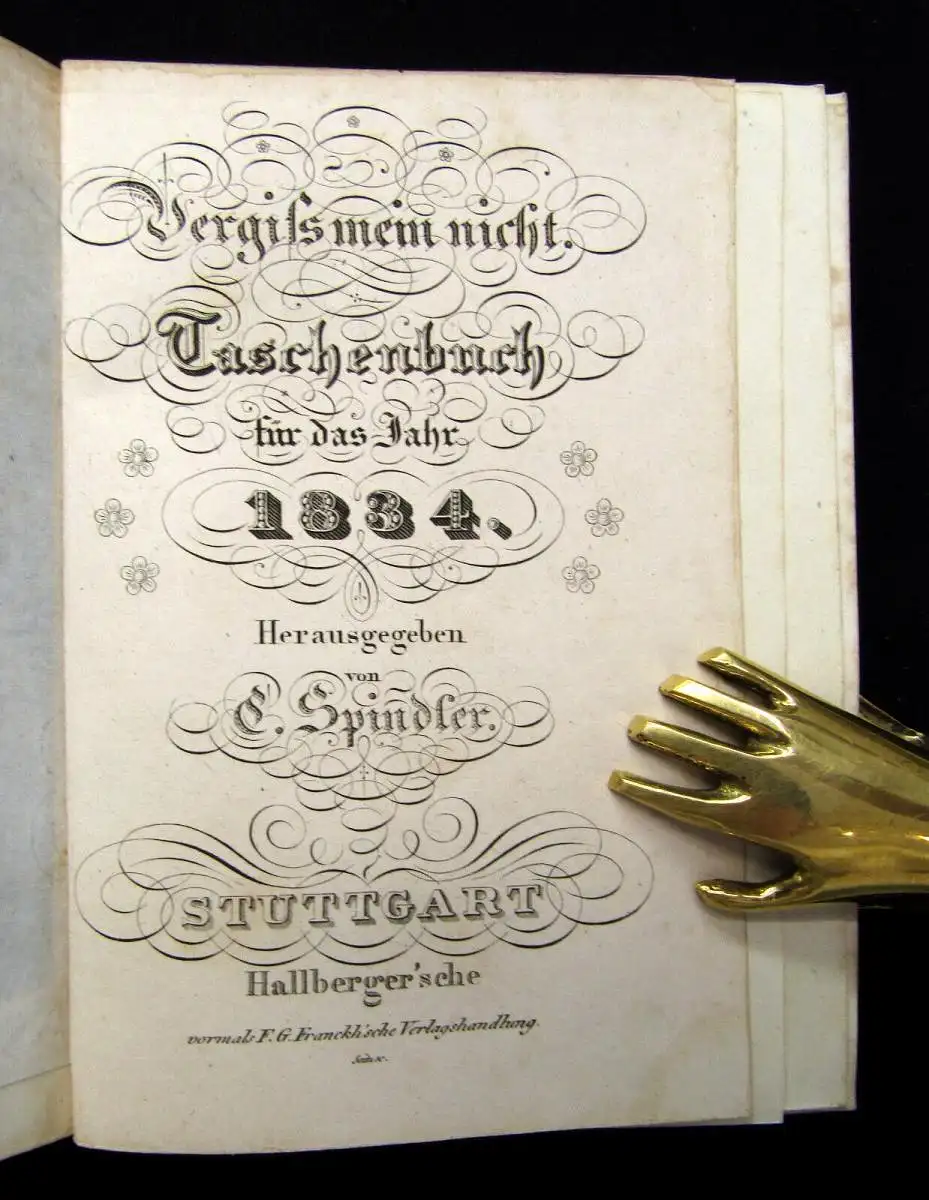 Vergiſsmein nicht.
Taschenbuch
für das Jahr
1834.
Herausgegeben
von
C. Spindler.
STUTTGART
Hallberger'sche
vormals F. G. Franckh'sche Verlagshandlung.